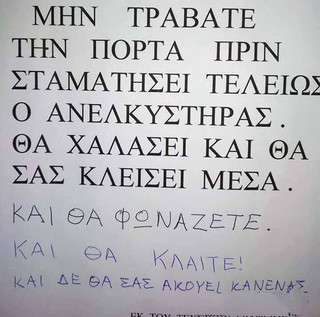 ΜΗΝ ΤΡΑΒΑΤΕ
ΤΗΝ ΠΟΡΤΑ ΠΡΙΝ
ΣΤΑΜΑΤΗΣΕΙ ΤΕΛΕΙΩΣ
Ο ΑΝΕΛΚΥΣΤΗΡΑΣ.
ΘΑ ΧΑΛΑΣΕΙ ΚΑΙ ΘΑ
ΣΑΣ ΚΛΕΙΣΕΙ ΜΕΣΑ.
ΚΑΙ ΘΑ ΦΩΝΑΖΕΤΕ.
ΚΑΙ ΘΑ ΚΛΑΙΤΕ!
ΚΑΙ ΔΕ ΘΑ ΣΑΣ ΑΚΟΥΕΙ ΚΑΝΕΝΑΣ.
ΕΚ ΤΟΥ